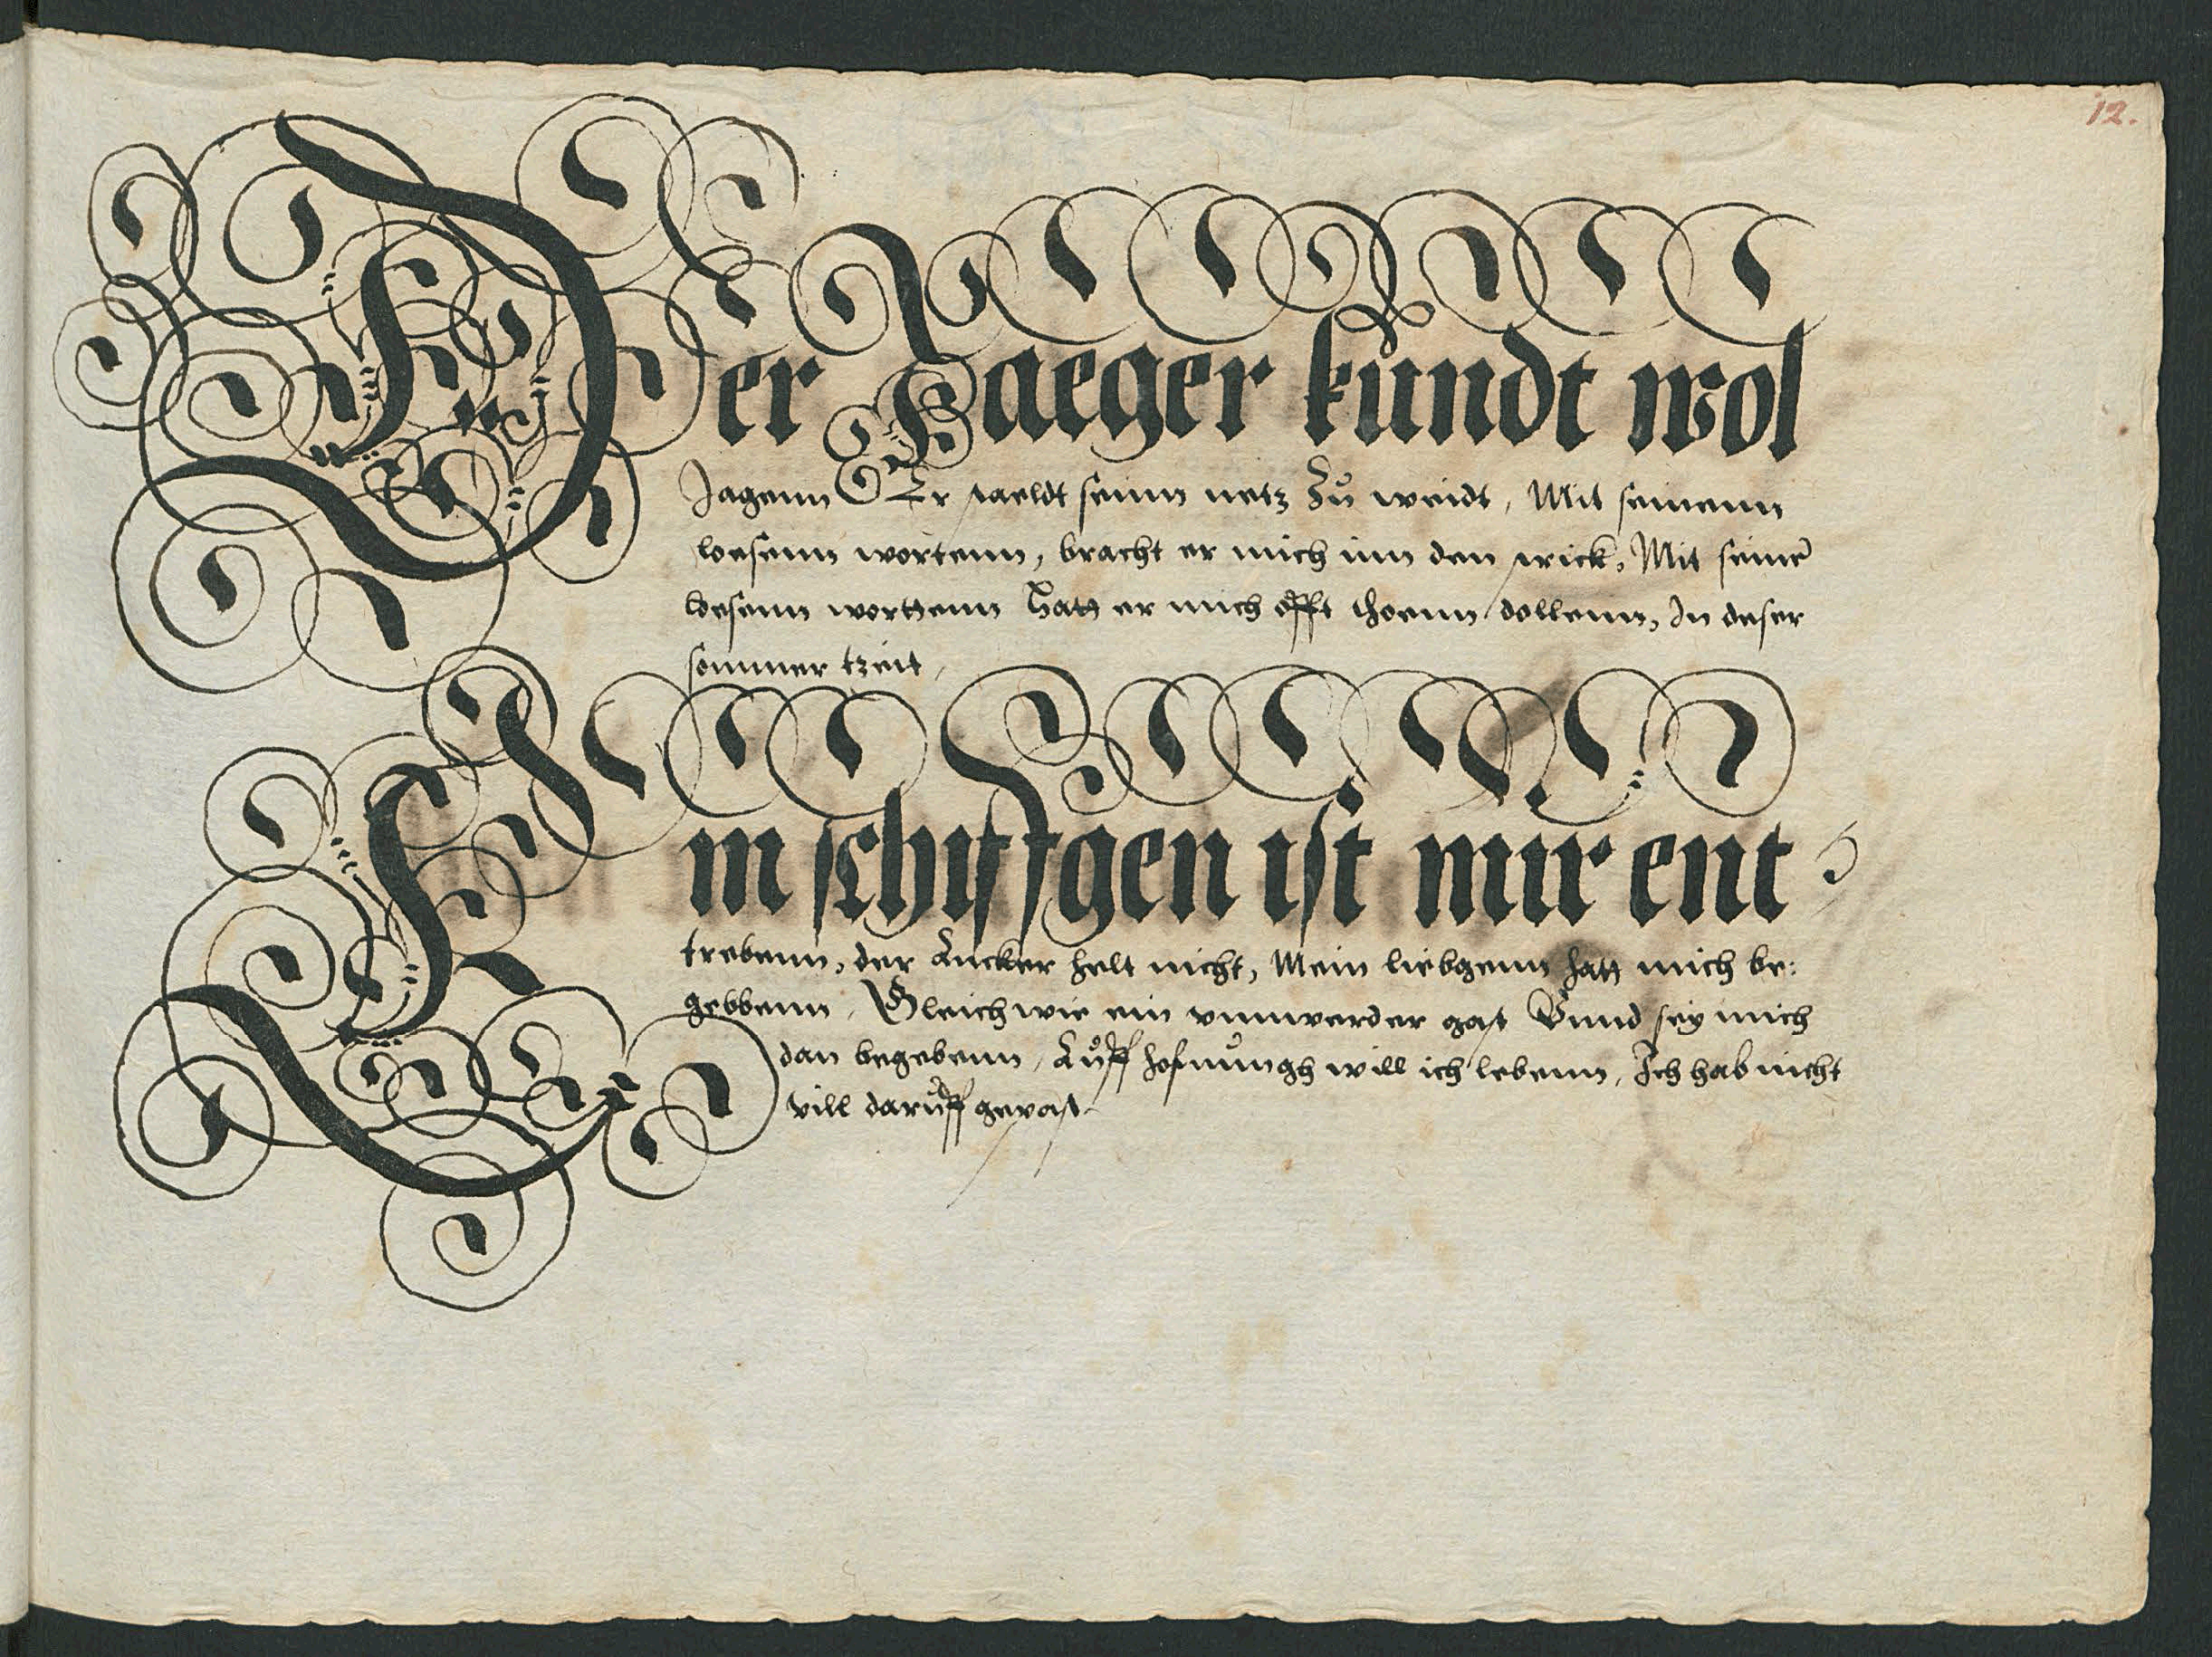 12.
Der Jaeger kůndt wol
Jagenn Er staeldt seinn netz Zů weidt, Mit seinenn
loesenn wortenn, bracht er mich inn den strick, Mit seinē
loesenn worttenn Hatt er mich offt thoenn dollenn, In deser
sommer tzeit,
Ein schiffgen ist mir ent
trebenn, der Ancker helt nicht, Mein liebgenn hatt mich be:
gebbenn, Gleich wie ein unnwerder gast Vnnd sey mich
dan begebenn, Aůff hofnůngh will ich lebenn, Ich hab nicht
vill darůff gevast